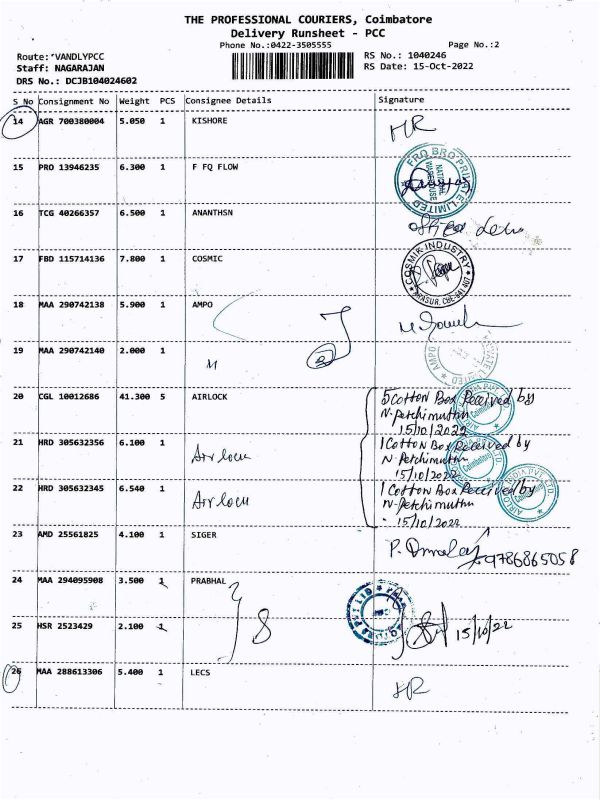 THE PROFESSIONAL COURIERS, Coimbatore
Delivery Runsheet - PCC
Phone No.:0422-3505555 Page No.:2
Route: VANDLYPCC RS No.: 1040246
Staff: NAGARAJAN RS Date: 15-Oct-2022
DRS No.: DCJB104024602
S No Consignment No Weight PCS Consignee Details Signature
14 AGR 700380004 5.050 1 KISHORE HR
15 PRO 13946235 6.300 1 F FQ FLOW
FRO BRO PRIVATE LIMITED
16 TCG 40266357 6.500 1 ANANTHSN
17 FBD 115714136 7.800 1 COSMIC
COSMIK INDUSTRY
18 MAA 290742138 5.900 1 AMPO
19 MAA 290742140 2.000 1 M 2
AMPO PRIVATE LIMITED
20 CGL 10012686 41.300 5 AIRLOCK 5 Cotton Box Received by
N-Petchimuthu
15/10/2022
21 HRD 305632356 6.100 1 Air locu 1 Cotton Box Received by
N-Petchimuthu
15/10/2022
22 HRD 305632345 6.540 1 Air locu 1 Cotton Box Received by
N-Petchimuthu
15/10/2022
23 AMD 25561825 4.100 1 SIGER 9786865058
24 MAA 294095908 3.500 1 PRABHAL
25 HSR 2523429 2.100 1 15/10/22
26 MAA 288613306 5.400 1 LECS HR